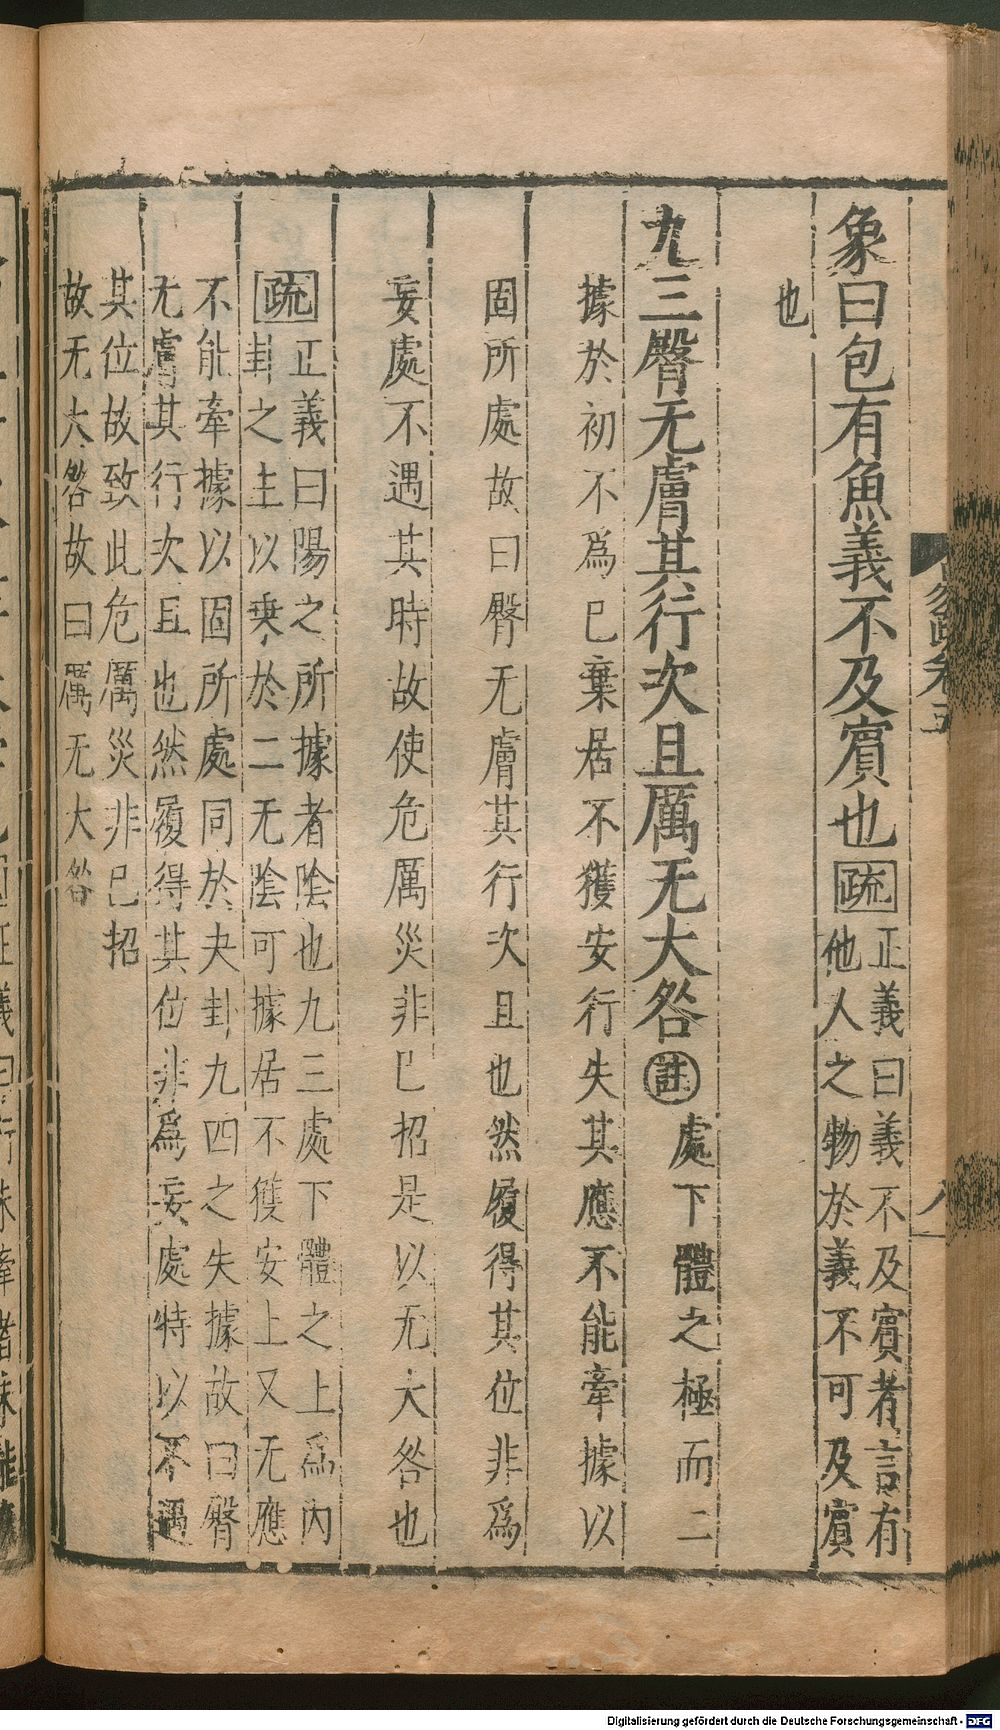 象曰包有魚義不及賓也疏正義曰義不及賓者言有
他人之物於義不可及賓
也
九三臀无膚其行次且厲无大咎註處下體之極而二
據於初不爲己棄居不獲安行失其應不能牽據以
固所處故曰臀无膚其行次且也然履得其位非爲
妄處不遇其時故使危厲災非己招是以无大咎也
疏正義曰陽之所據者陰也九三處下體之上爲內
卦之主以乗於二无陰可據居不獲安上又无應
不能牽據以固所處同於夬卦九四之失據故曰臀
无膚其行次且也然履得其位非爲妄處特以不遇
其位故致此危厲災非己招
故无大咎故曰厲无大咎
卷五
八
Digitalisierung gefördert durch die Deutsche Forschungsgemeinschaft - DFG